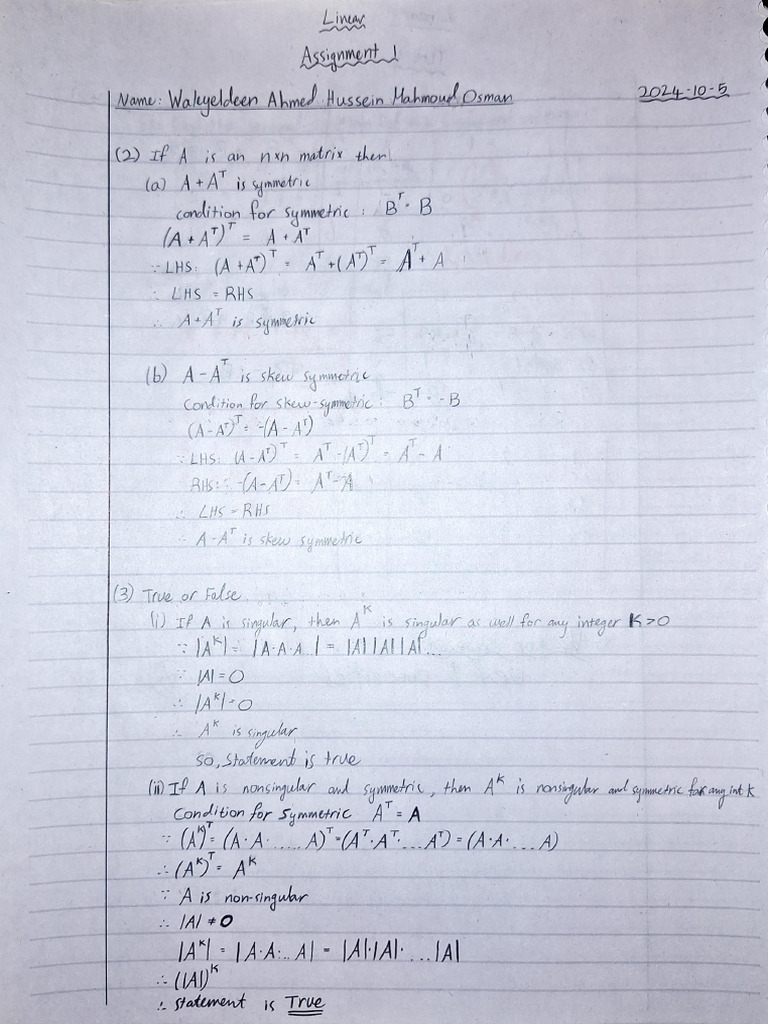 Linear
Assignment 1
Name: Walyeldeen Ahmed Hussein Mahmoud Osman 2024-10-5
(2) If A is an n×n matrix then
(a) A + Aᵀ is symmetric
condition for symmetric : Bᵀ = B
(A + Aᵀ)ᵀ = A + Aᵀ
∵ LHS: (A + Aᵀ)ᵀ = Aᵀ + (Aᵀ)ᵀ = Aᵀ + A
∴ LHS = RHS
∴ A + Aᵀ is symmetric
(b) A - Aᵀ is skew symmetric
Condition for skew-symmetric : Bᵀ = -B
(A - Aᵀ)ᵀ = -(A - Aᵀ)
∵ LHS: (A - Aᵀ)ᵀ = Aᵀ - (Aᵀ)ᵀ = Aᵀ - A
RHS: -(A - Aᵀ) = Aᵀ - A
∴ LHS = RHS
∴ A - Aᵀ is skew symmetric
(3) True or False
(i) If A is singular, then Aᴷ is singular as well for any integer K > 0
∵ |Aᴷ| = |A·A·A...| = |A| |A| |A|...
∵ |A| = 0
∴ |Aᴷ| = 0
∴ Aᴷ is singular
so, statement is true
(ii) If A is nonsingular and symmetric, then Aᴷ is nonsingular and symmetric for any int K
Condition for symmetric Aᵀ = A
∵ (Aᴷ)ᵀ = (A·A· ..... A)ᵀ = (Aᵀ·Aᵀ· ... Aᵀ) = (A·A· ... A)
∴ (Aᴷ)ᵀ = Aᴷ
∵ A is non-singular
∴ |A| ≠ 0
|Aᴷ| = |A·A·... A| = |A|·|A|· ... |A|
∴ (|A|)ᴷ
∴ statement is True